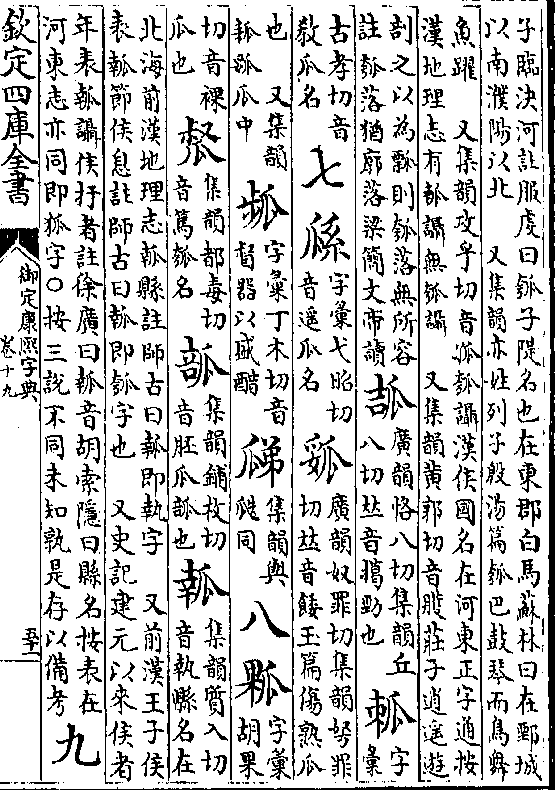 子臨決河註服虔曰瓠子隄名也在東郡白馬蘇林曰在鄄城
以南濮陽以北　又集韻亦姓列子殷湯篇瓠巴鼓琴而鳥舞
魚躍　又集韻攻乎切音孤瓠讘漢侯國名在河東正字通按
漢地理志有瓡讘無瓠讘　又集韻黄郭切音臒莊子逍遥遊
剖之以為瓢則瓠落無所容
註瓠落猶廓落梁簡文帝讀
廣韻恪八切集韻丘
八切𠀤音勁也
字
彙
古孝切音
教瓜名
七
字彙弋昭切
音遥瓜名
廣韻奴罪切集韻弩罪
切𠀤音餧玉篇傷熟瓜
也　又集韻
瓜中
字彙丁木切音
督器以盛醋
集韻與
瓞同
八
字彙
胡果
切音裸
瓜也
集韻都毒切
音篤瓠名
集韻鋪枚切
音胚瓜瓝也
瓡
集韻質入切
音執縣名在
北海前漢地理志瓡縣註師古曰瓡即執字　又前漢王子侯
表瓡節侯息註師古曰瓡即瓠字也　又史記建元以來侯者
年表瓡讘侯扞者註徐廣曰瓡音胡索隱曰縣名按表在
河東志亦同即狐字〇按三說不同未知孰是存以備考
九
欽定四庫全書
御定康熙字典
卷十九